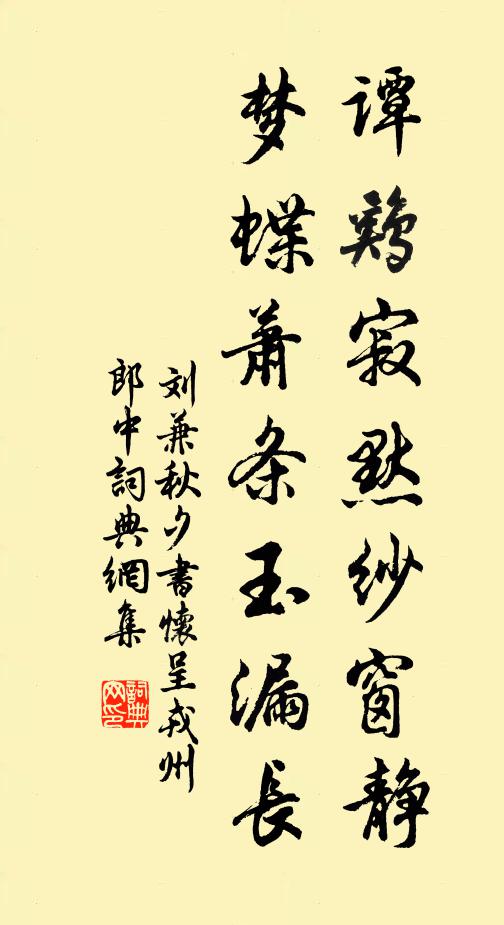 谭鷄寂默纱窗静
梦蝶萧条玉漏长
刘兼秋夕书懷呈戎州
郎中詞典網集
詞典網印